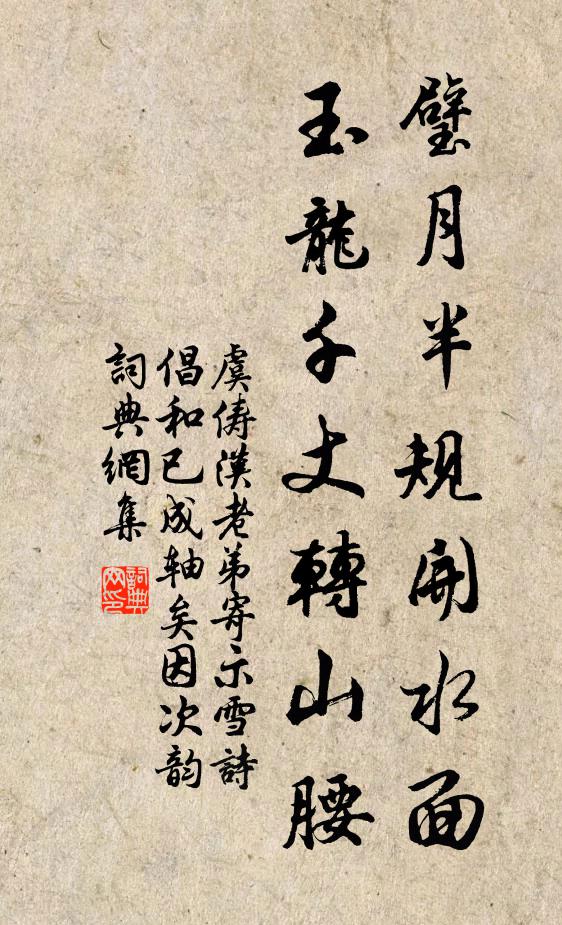 璧月半規開水面
玉龍千丈轉山腰
虞儔漢老弟寄示雪詩
倡和已成轴矣因次韵
詞典網集
詞典
网印